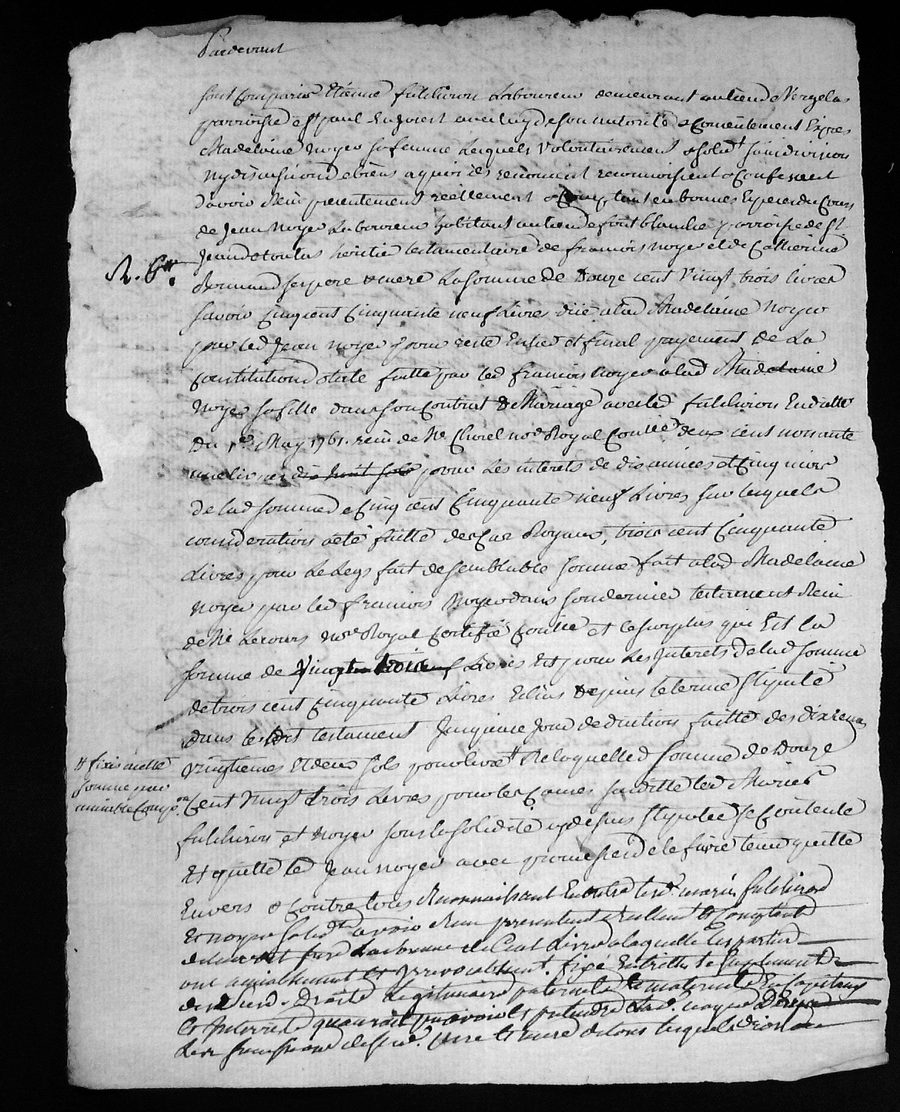 Pardevant
sont comparus Etienne fulchiron Laboureur demeurant au lieu de Vergelas
parroisse de St paul En Jorest avec luy de son autorité & Consentement Expres
Madelaine Noyer sa femme Lesquels volontairement & solidt. sans division
ny discution de biens a quoi ils renoncent reconnoissent & Confessent
d'avoir Receu presentement reellement & Comptant en bonnes Especes du Cours
de Jean Noyer Laboureur habitant au lieu de font blanche parroisse de St
Jean de toulas heritier testamentaire de francois noyer et de Catherine
ses pere & mere La somme de Douze cent Vingt trois livres
savoir Cinq cent Cinquante neuf Livres due a lad Madelaine Noyer
par led Jean noyer pour reste Entier et final payement de La
Constitution dotale faitte par led francois Noyer a lad Madelaine
Noyer sa fille dans son Contrat de Mariage avec led fulchiron En datte
Du 1er May 1761. receu de Me Chorel nore Royal deux cent nonante
une livres dix huit sols pour Les interets de dix années et Cinq mois
de lad somme de Cinq cent Cinquante neuf Livres sur lesquels
consideration a été faitte des Royaux, trois cent Cinquante
Livres pour Le Legs fait de semblable somme fait a lad Madelaine
Noyer par led francois Noyer dans son dernier testament Receu
de Me Lecourt nore Royal Certifié Controllé et le surplus qui Est la
somme de Vingt trois Livres Est pour Les Interets de lad somme
de trois cent Cinquante Livres Echus depuis le terme stipulé
dans le dit testament Jusqu'a ce Jour deduction faitte des dixieme
Vingtiemes et deux sols pour livre De laquelle d somme de Douze
Et fixés a cette
somme par
amiable Compon.
Cent Vingt trois Livres pour les Causes susditte les Mariés
fulchiron et Noyer sous la solidité cy dessus stipulée se Contente
Et quitte led Jean Noyer avec promesse de le faire tenir quitte
Envers & Contre tous Reconnaissant En outre lesd. mariés fulchiron
Et noyer solidt. avoir Receu presentement reellement et Comptant
La somme de Cent Livres a laquelle Les parties
ont amiablement Et irrevocablement fixé Entr'elles le suplement de
Droits Legitimaires paternels & maternels En Capitaux
Et Interets prétendre lad. noyer
R. Gr.